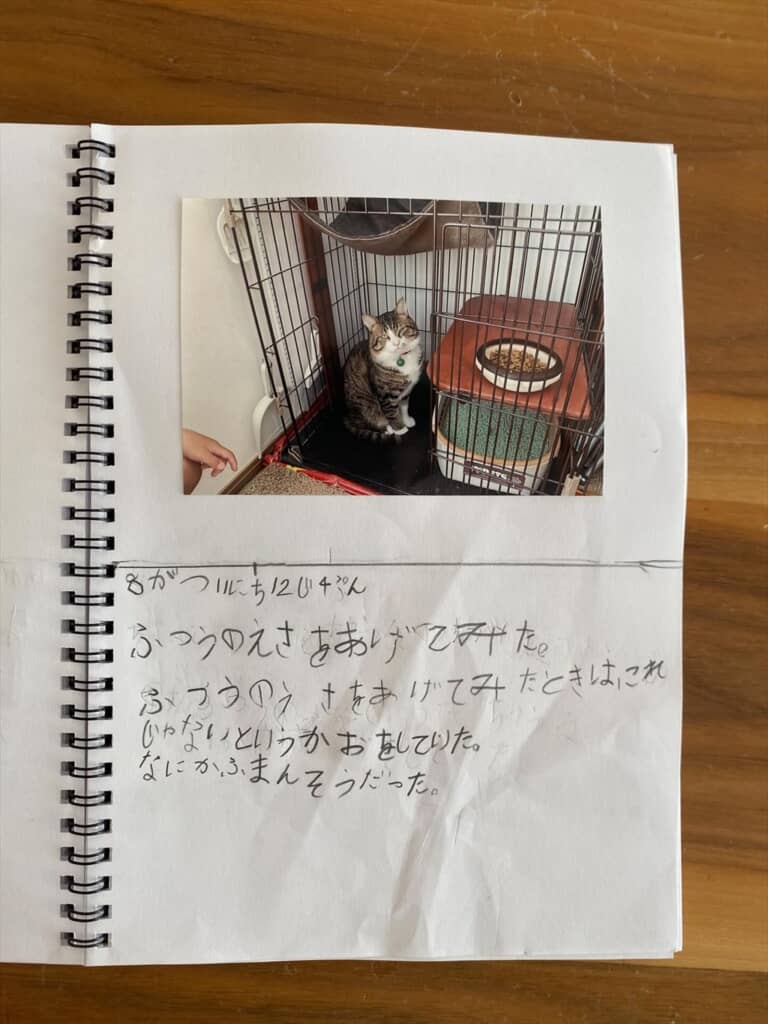 8がつ11にち12じ4ぷん
ふつうのえさをあげてみた。
ふつうのえさをあげてみたときは、これ
じゃないというかおをしていた。
なにかふまんそうだった。